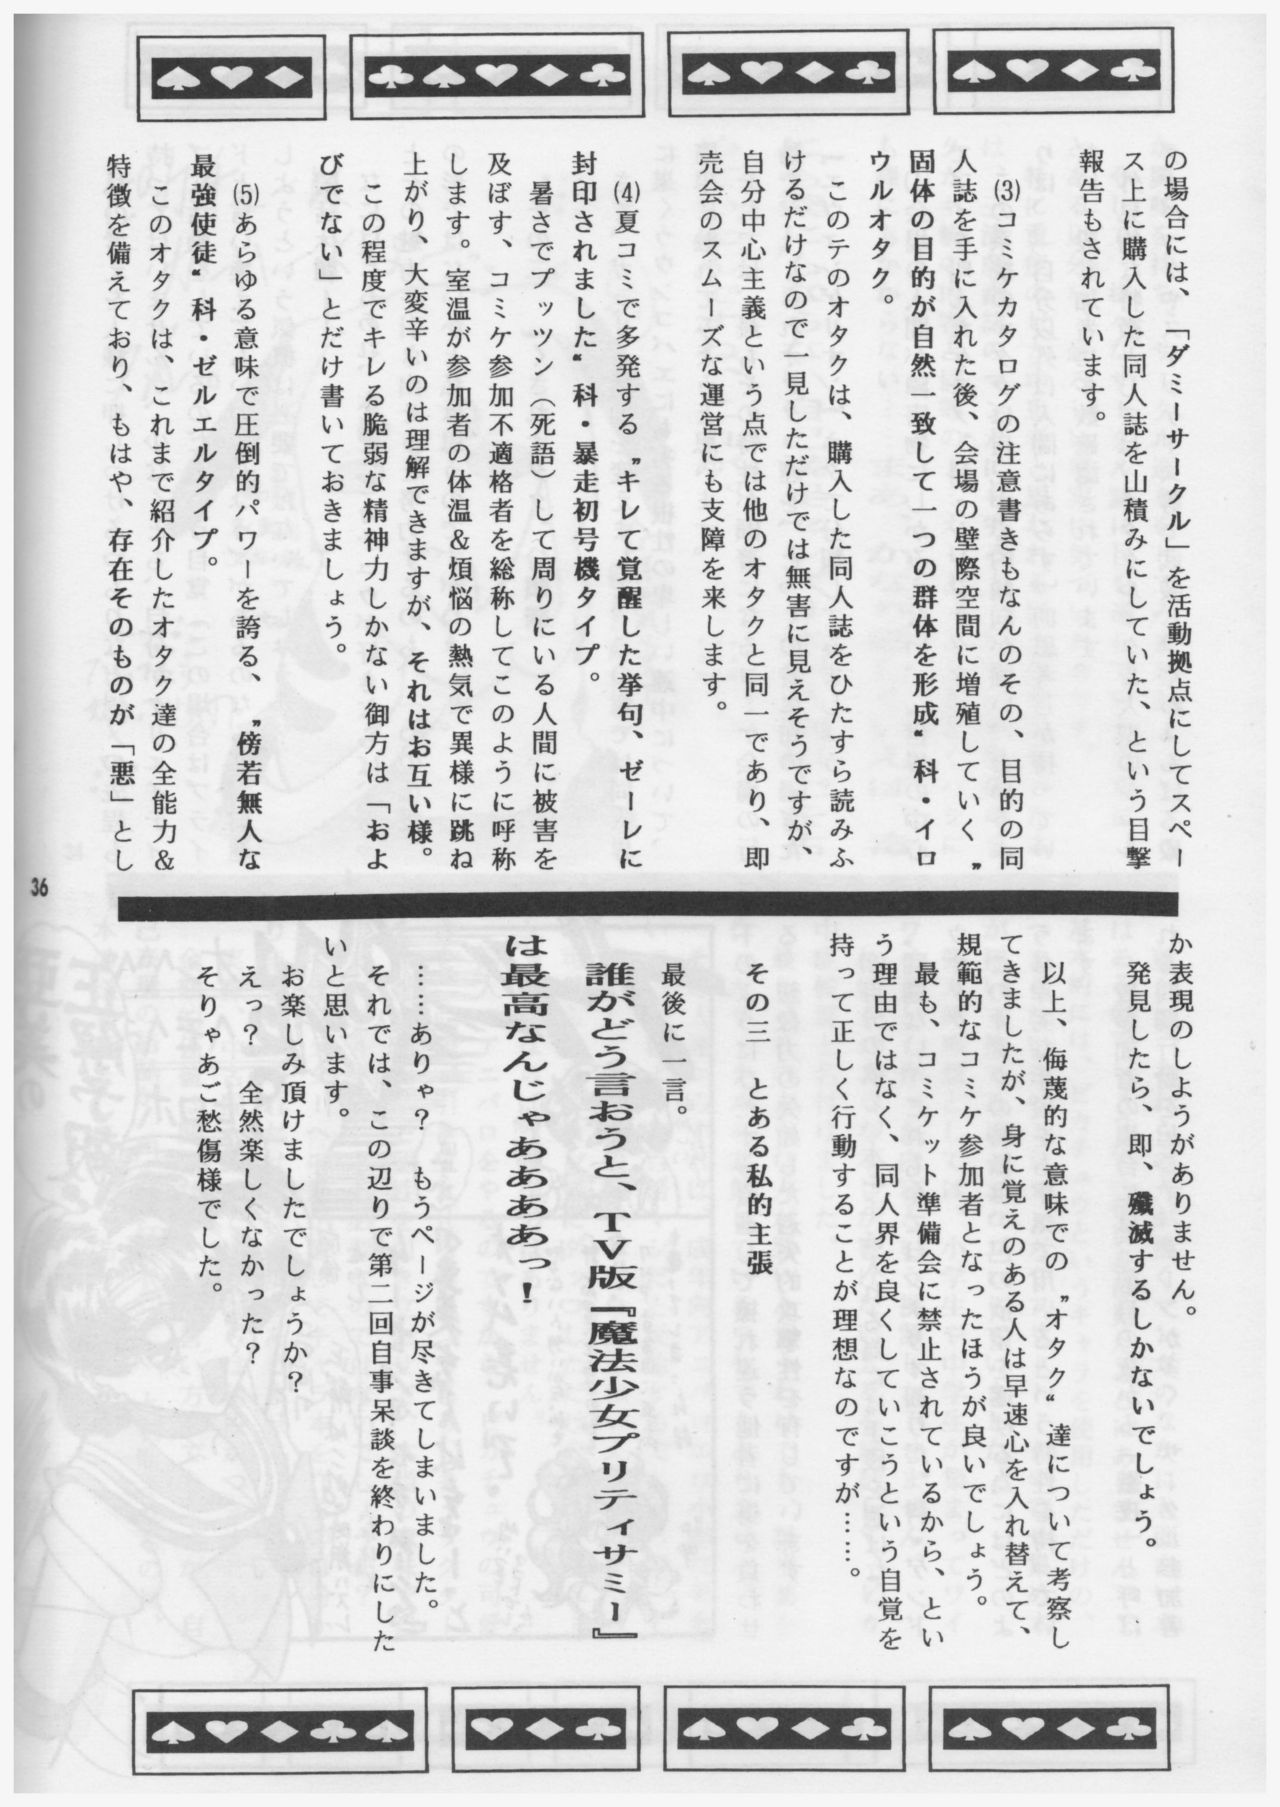 の場合には、「ダミーサークル」を活動拠点にしてスペー
ス上に購入した同人誌を山積みにしていた、という目撃
報告もされています。
⑶コミケカタログの注意書きもなんのその、目的の同
人誌を手に入れた後、会場の壁際空間に増殖していく〝
固体の目的が自然一致して一つの群体を形成〟科・イロ
ウルオタク。
このテのオタクは、購入した同人誌をひたすら読みふ
けるだけなので一見しただけでは無害に見えそうですが、
自分中心主義という点では他のオタクと同一であり、即
売会のスムーズな運営にも支障を来します。
⑷夏コミで多発する〝キレて覚醒した挙句、ゼーレに
封印されました〟科・暴走初号機タイプ。
暑さでプッツン（死語）して周りにいる人間に被害を
及ぼす、コミケ参加不適格者を総称してこのように呼称
します。室温が参加者の体温＆煩悩の熱気で異様に跳ね
上がり、大変辛いのは理解できますが、それはお互い様。
この程度でキレる脆弱な精神力しかない御方は「およ
びでない」とだけ書いておきましょう。
⑸あらゆる意味で圧倒的パワーを誇る、〝傍若無人な
最強使徒〟科・ゼルエルタイプ。
このオタクは、これまで紹介したオタク達の全能力＆
特徴を備えており、もはや、存在そのものが「悪」とし
か表現のしようがありません。
発見したら、即、殲滅するしかないでしょう。
以上、侮蔑的な意味での〝オタク〟達について考察し
てきましたが、身に覚えのある人は早速心を入れ替えて、
規範的なコミケ参加者となったほうが良いでしょう。
最も、コミケット準備会に禁止されているから、とい
う理由ではなく、同人界を良くしていこうという自覚を
持って正しく行動することが理想なのですが……。
その三　とある私的主張
最後に一言。
誰がどう言おうと、TV版『魔法少女プリティサミー』
は最高なんじゃああああっ！
……ありゃ？　もうページが尽きてしまいました。
それでは、この辺りで第二回自事呆談を終わりにした
いと思います。
お楽しみ頂けましたでしょうか？
えっ？　全然楽しくなかった？
そりゃあご愁傷様でした。
36